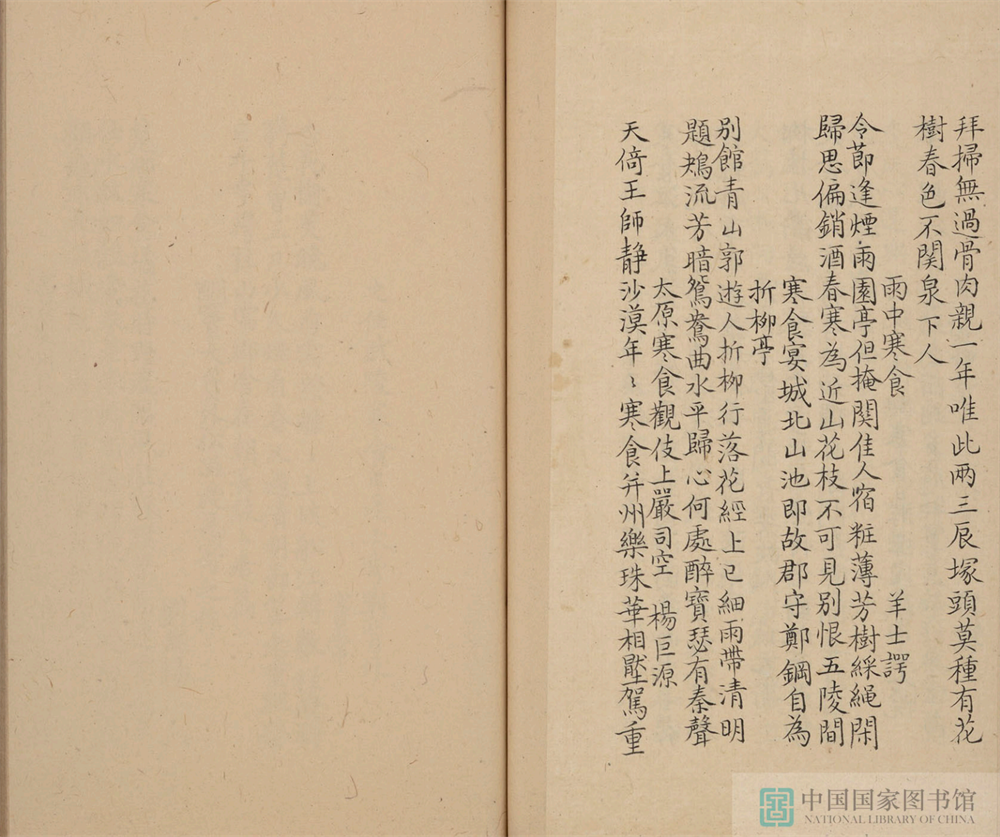 拜掃無過骨肉親一年唯此兩三辰塚頭莫種有花
樹春色不関泉下人
雨中寒食 羊士諤
令節逢煙雨園亭但掩関佳人宿粧薄芳樹綵繩閑
歸思偏銷酒春寒為近山花枝不可見別恨五陵間
寒食宴城北山池即故郡守鄭鋼自為
折柳亭
別館青山郭遊人折柳行落花經上巳細雨帶清明
題鴂流芳暗鴛鴦曲水平歸心何處醉寶瑟有秦聲
太原寒食觀伎上嚴司空 楊巨源
天倚王師静沙漠年〻寒食并州樂珠華相壓駕重
中国国家图书馆
NATIONAL LIBRARY OF CHINA